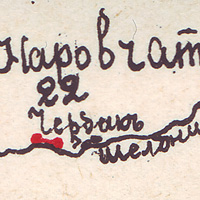 Наровчат
22
Чердакъ
шелони